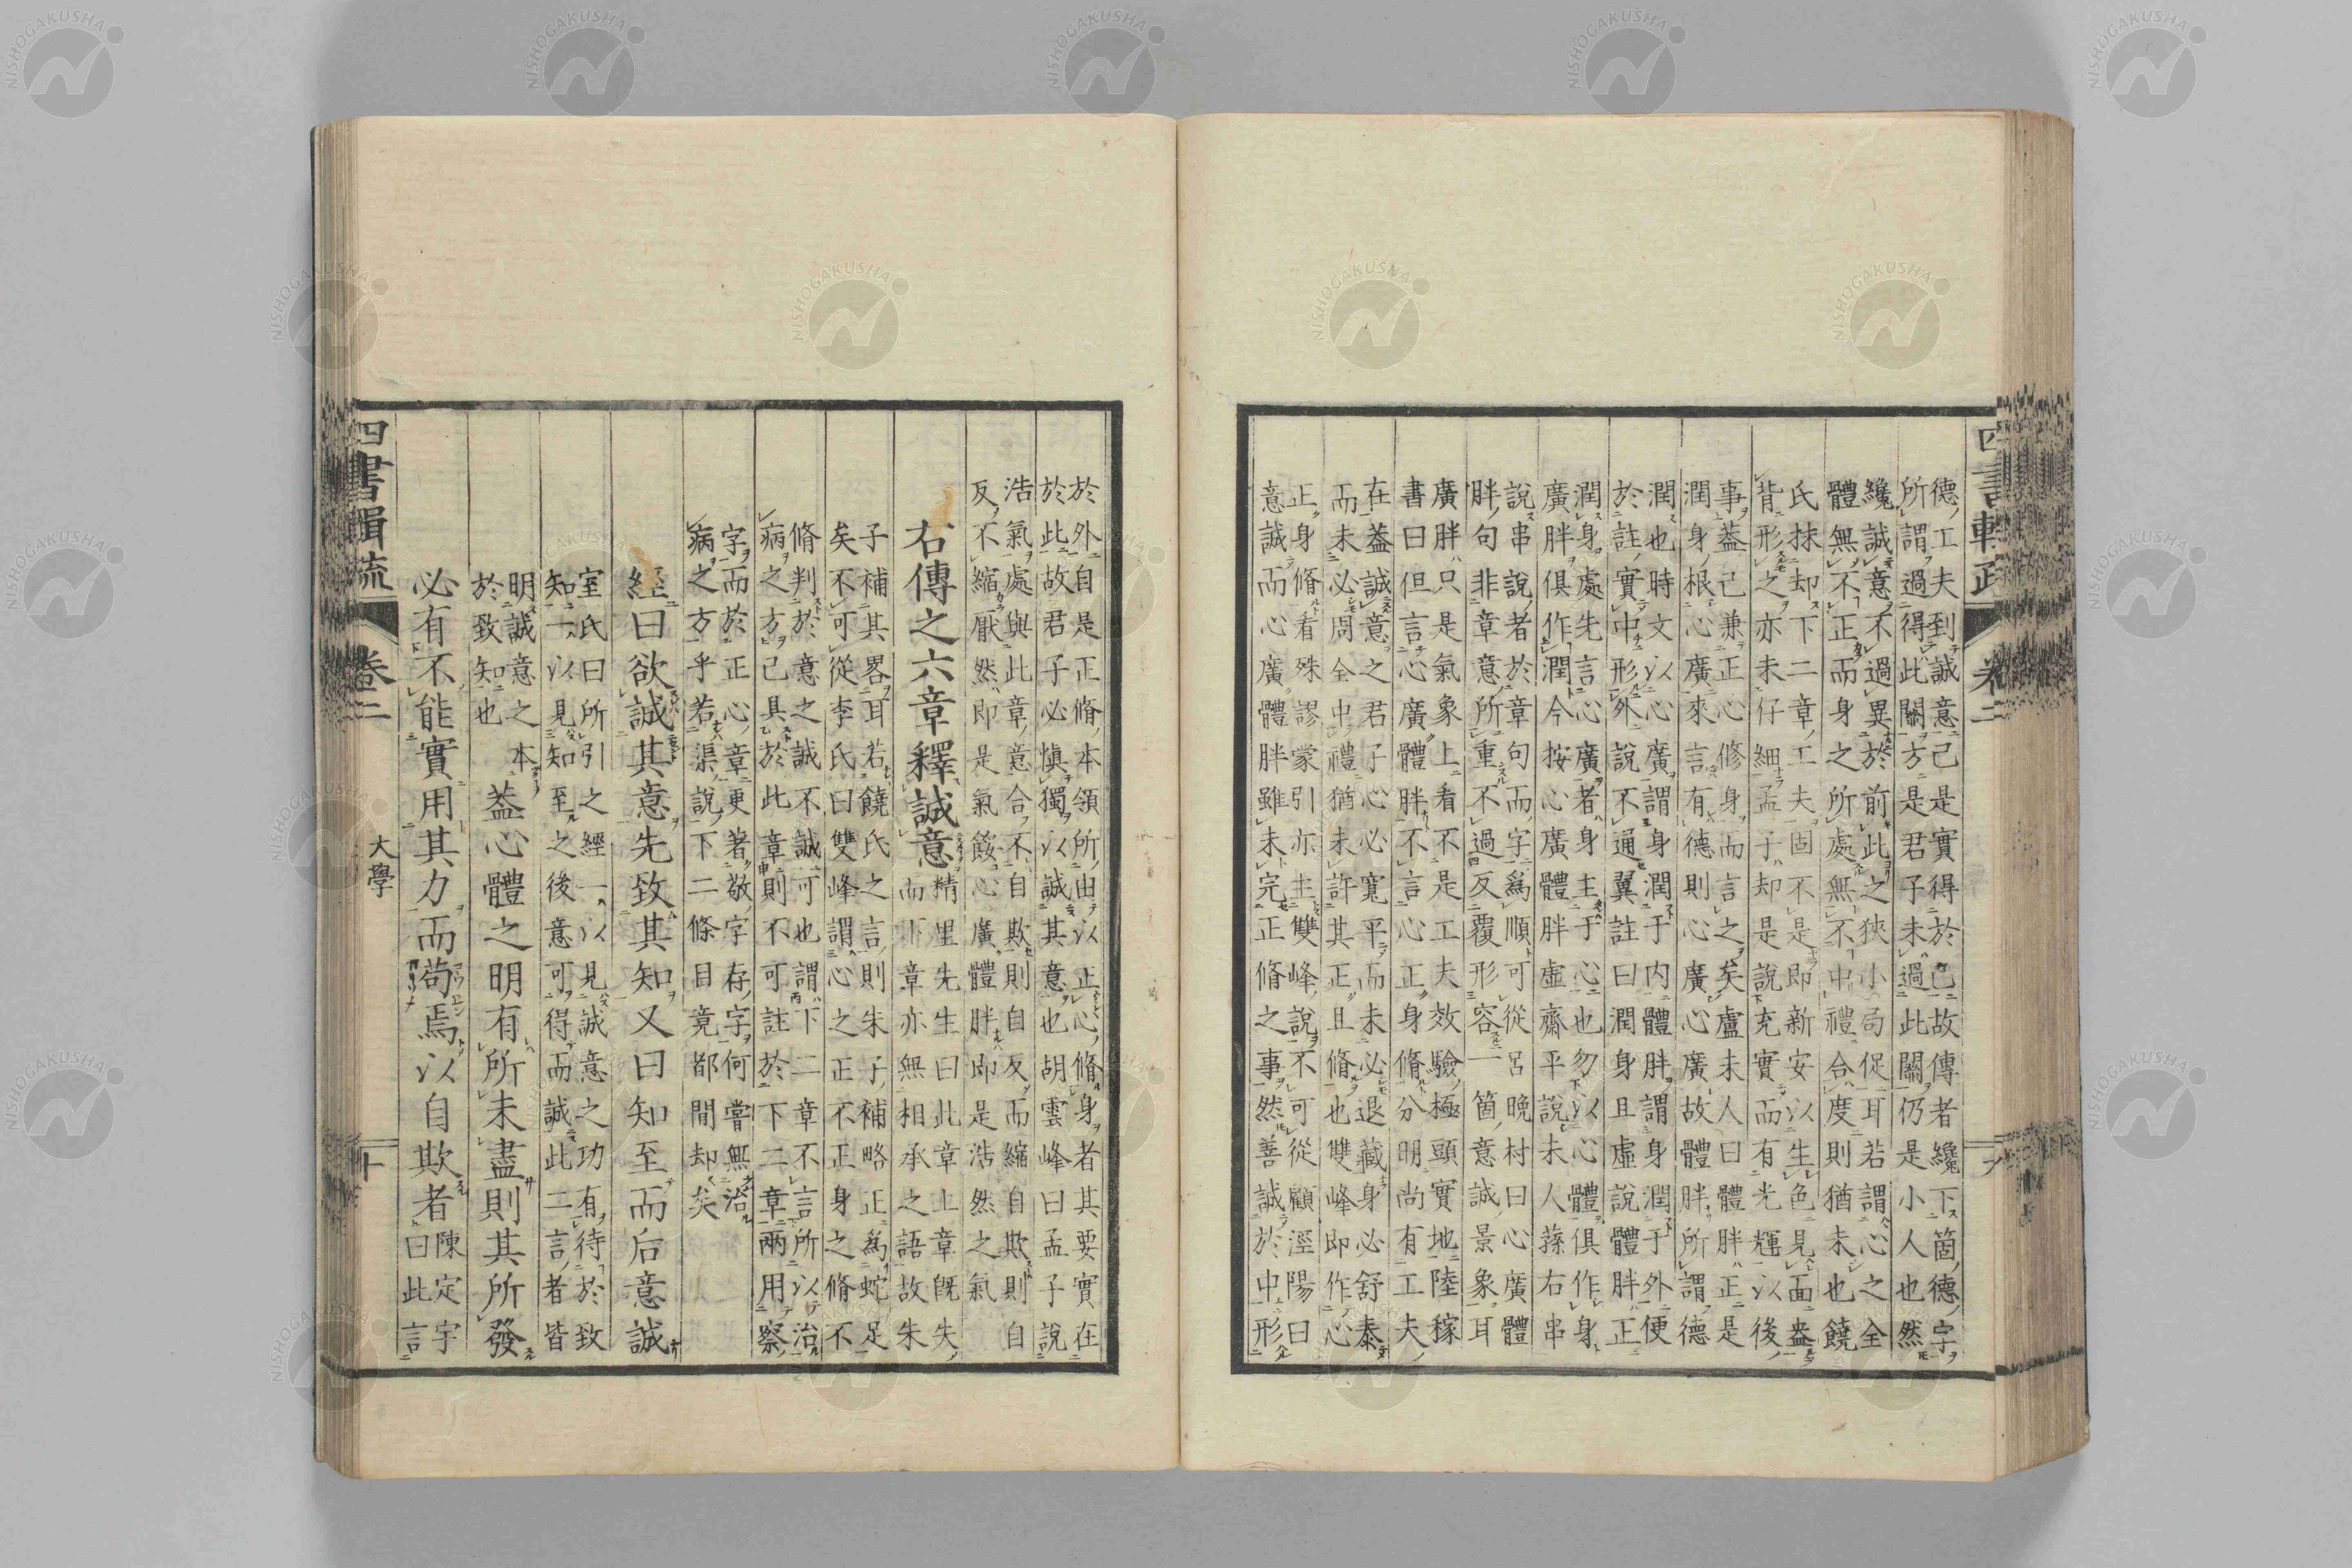 德工夫到誠意已是實得於己故傳者纔下箇德字
所謂過得此關方是君子未過此關仍是小人也然
纔誠意不過異於前此之狹小局促耳若謂心之全
體無不正而身之所處無不中禮合度則猶未也饒
氏抹却下二章工夫固不是即新安以生色見面盎
背形之亦未仔細孟子却是說充實而有光輝以後
事蓋己兼正心修身而言之矣盧未人曰體胖正是
潤身根心廣來言有德則心廣心廣故體胖所謂德
潤也時文以心廣謂身潤于内體胖謂身潤于外便
於註實中形外說不通翼註曰潤身且虛說體胖正
潤身處先言心廣者身主于心也勿以心體俱作身
廣胖俱作潤今按心廣體胖虛齋平說未人蓀右串
說串說者於章句而字爲順可從呂晚村曰心廣體
胖句非章意所重不過反覆形容一箇意誠景象耳
廣胖只是氣象上看不是工夫效驗極頭實地陸稼
書曰但言心廣體胖不言心正身脩分明尚有工夫
在蓋誠意之君子心必寬平而未必退藏身必舒泰
而未必周全中禮猶未許其正且脩也雙峰即作心
正身脩看殊謬蒙引亦主雙峰說不可從顧涇陽曰
意誠而心廣體胖雖未完正脩之事然善誠於中形
於外自是正脩本領所由以正心脩身者其要實在
於此故君子必愼獨以誠其意也胡雲峰曰孟子說
浩氣處與此章意合不自欺則自反而縮自欺則自
反不縮厭然即是氣餒心廣體胖即是浩然之氣
右傳之六章釋誠意
精里先生曰此章上章旣失
而下章亦無相承之語故朱
子補其畧耳若饒氏之言則朱子補略正爲蛇足
矣不可從李氏曰雙峰謂心之正不正身之脩不
脩判於意之誠不誠可也謂下二章不言所以治
病之方已具於此章則不可註於下二章兩用察
字而於正心章更著敬字存字何嘗無治
病之方乎若渠說下二條目竟都間却矣
經曰欲誠其意先致其知又曰知至而后意誠
室氏曰所引之經一以見誠意之功有待於致
知一以見知至之後意可得而誠此二言者皆
明誠意之本
於致知也
蓋心體之明有所未盡則其所發
必有不能實用其力而苟焉以自欺者
陳定宇
曰此言
四書輯疏
卷二
大學
十
NISHOGAKUSHA